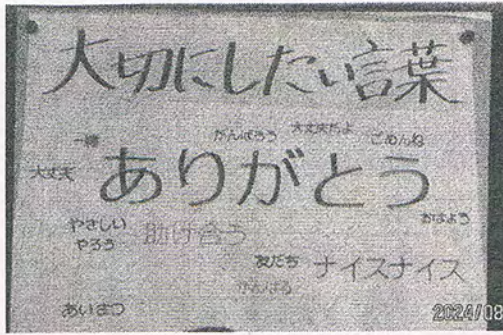 大切にしたい言葉
がんばろう 大丈夫だよ ごめんね
一緒
大丈夫 ありがとう
おはよう
やさしい
やろう
助け合う
友だち ナイスナイス
がんばる
あいさつ
2024/08